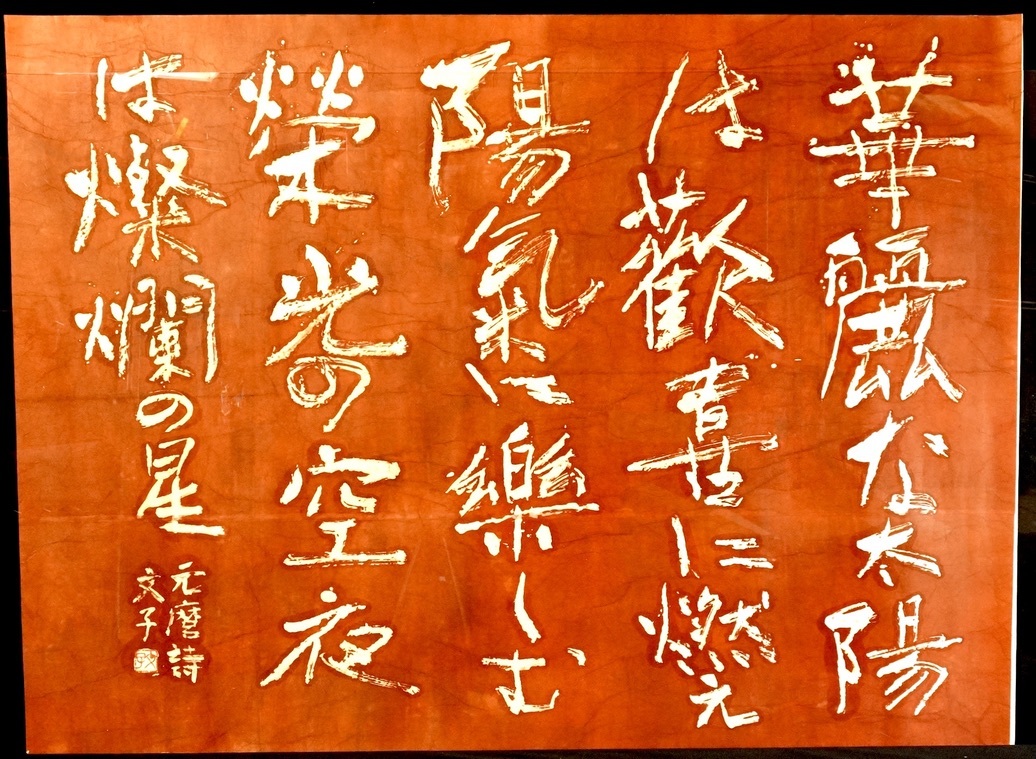 華麗な太陽
は歓喜に燃え
陽氣に樂しむ
榮光の空夜
は燦爛の星
元麿詩
文子